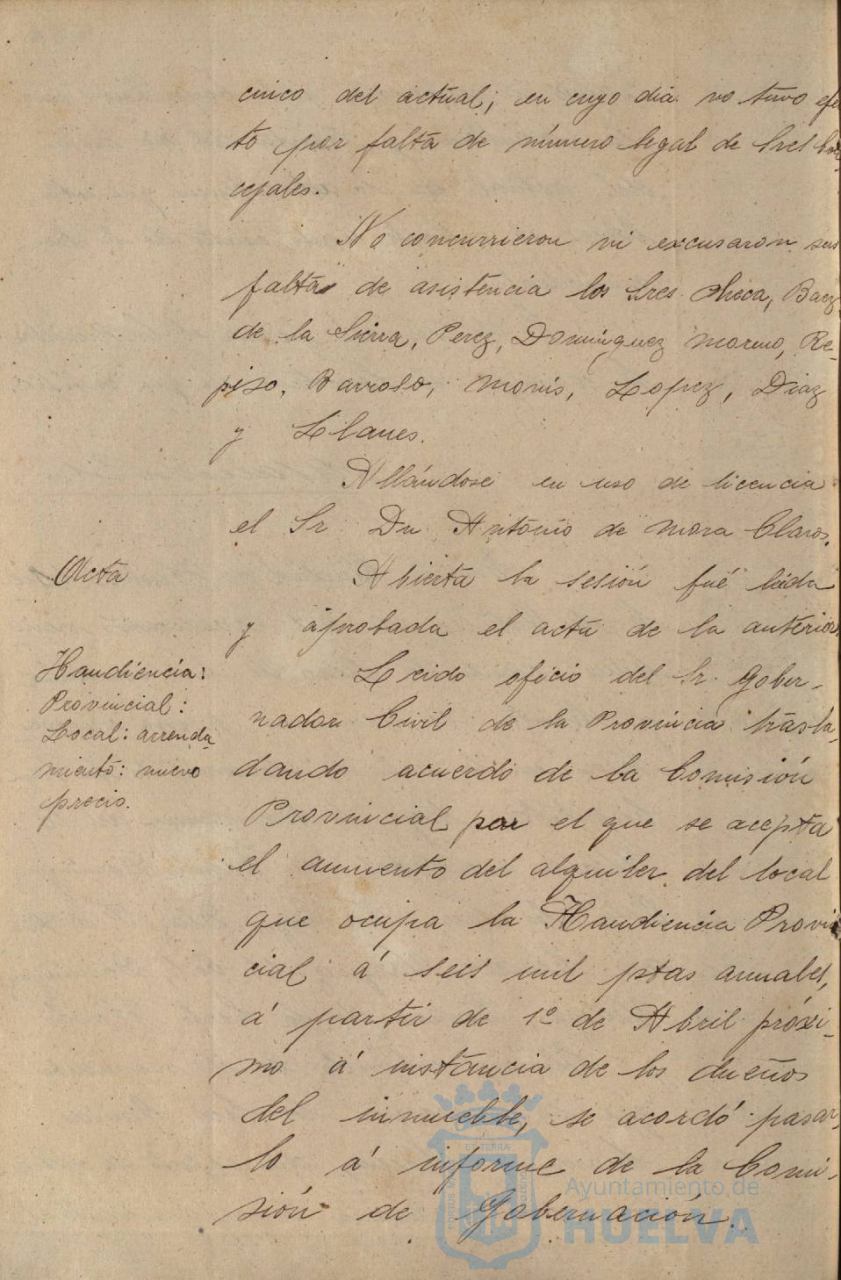 cinco del actual; en cuyo dia no tuvo efe
to por falta de número legal de Sres Con
cejales.
No concurrieron ni excusaron sus
faltas de asistencia los Sres. Checa, Baez
de la Sierra, Perez, Dominguez Moreno, Re-
piso, Barroso, Monís, Lopez, Diaz
y Llanes.
Allándose en uso de licencia
el Sr Dn Antonio de Mora Claros.
Acta
Abierta la sesión fué leida
y aprobada el acta de la anterior.
Haudiencia:
Provincial:
Local: arrenda
miento: nuevo
precio.
Leido oficio del Sr. Gober-
nador Civil de la Provincia trasla-
dando acuerdo de la Comisión
Provincial por el que se acepta
el aumento del alquiler del local
que ocupa la Haudiencia Provin
cial á seis mil ptas anuales,
á partir de 1º de Abril próxi-
mo á instancia de los dueños
del inmueble, se acordó pasar
lo á informe de la Comi-
sión de Gobernación.
Ayuntamiento de
HUELVA